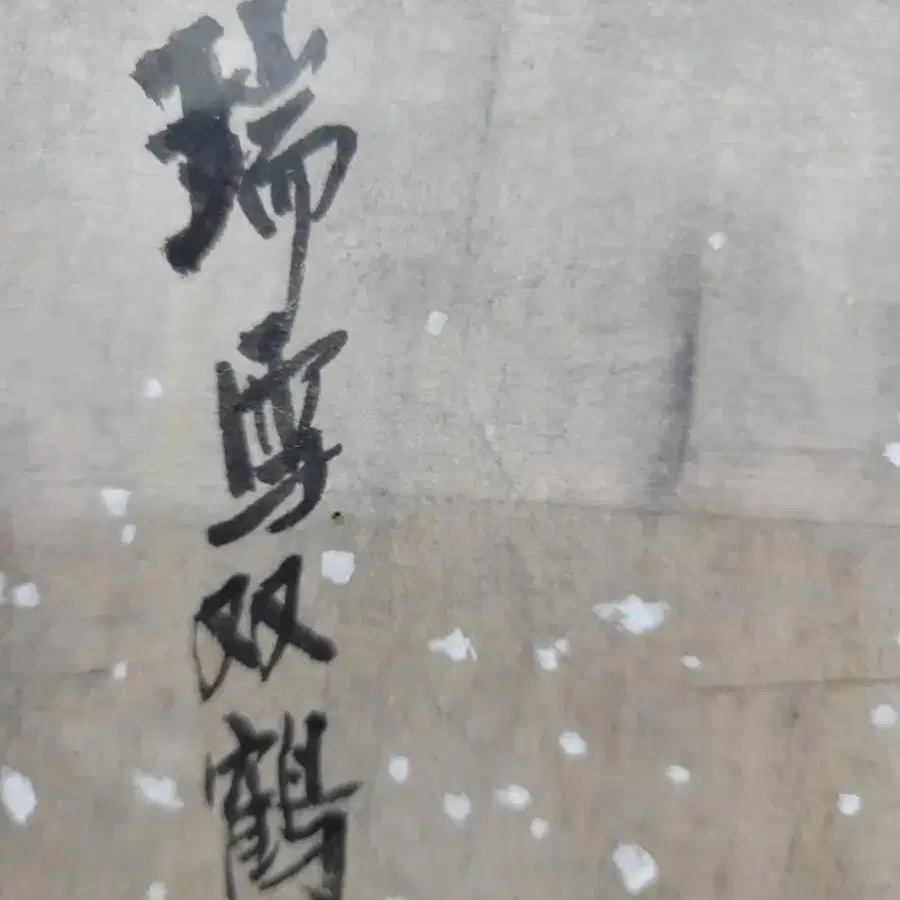 瑞雪双鹤